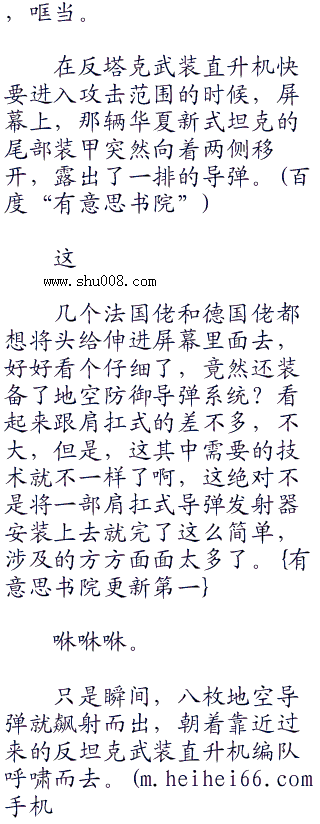 ，哐当。
在反塔克武装直升机快
要进入攻击范围的时候，屏
幕上，那辆华夏新式坦克的
尾部装甲突然向着两侧移
开，露出了一排的导弹。(百
度“有意思书院”)
这
www.shu008.com
几个法国佬和德国佬都
想将头给伸进屏幕里面去，
好好看个仔细了，竟然还装
备了地空防御导弹系统？看
起来跟肩扛式的差不多，不
大，但是，这其中需要的技
术就不一样了啊，这绝对不
是将一部肩扛式导弹发射器
安装上去就完了这么简单，
涉及的方方面面太多了。{有
意思书院更新第一}
咻咻咻。
只是瞬间，八枚地空导
弹就飙射而出，朝着靠近过
来的反坦克武装直升机编队
呼啸而去。(m.heihei66.com
手机